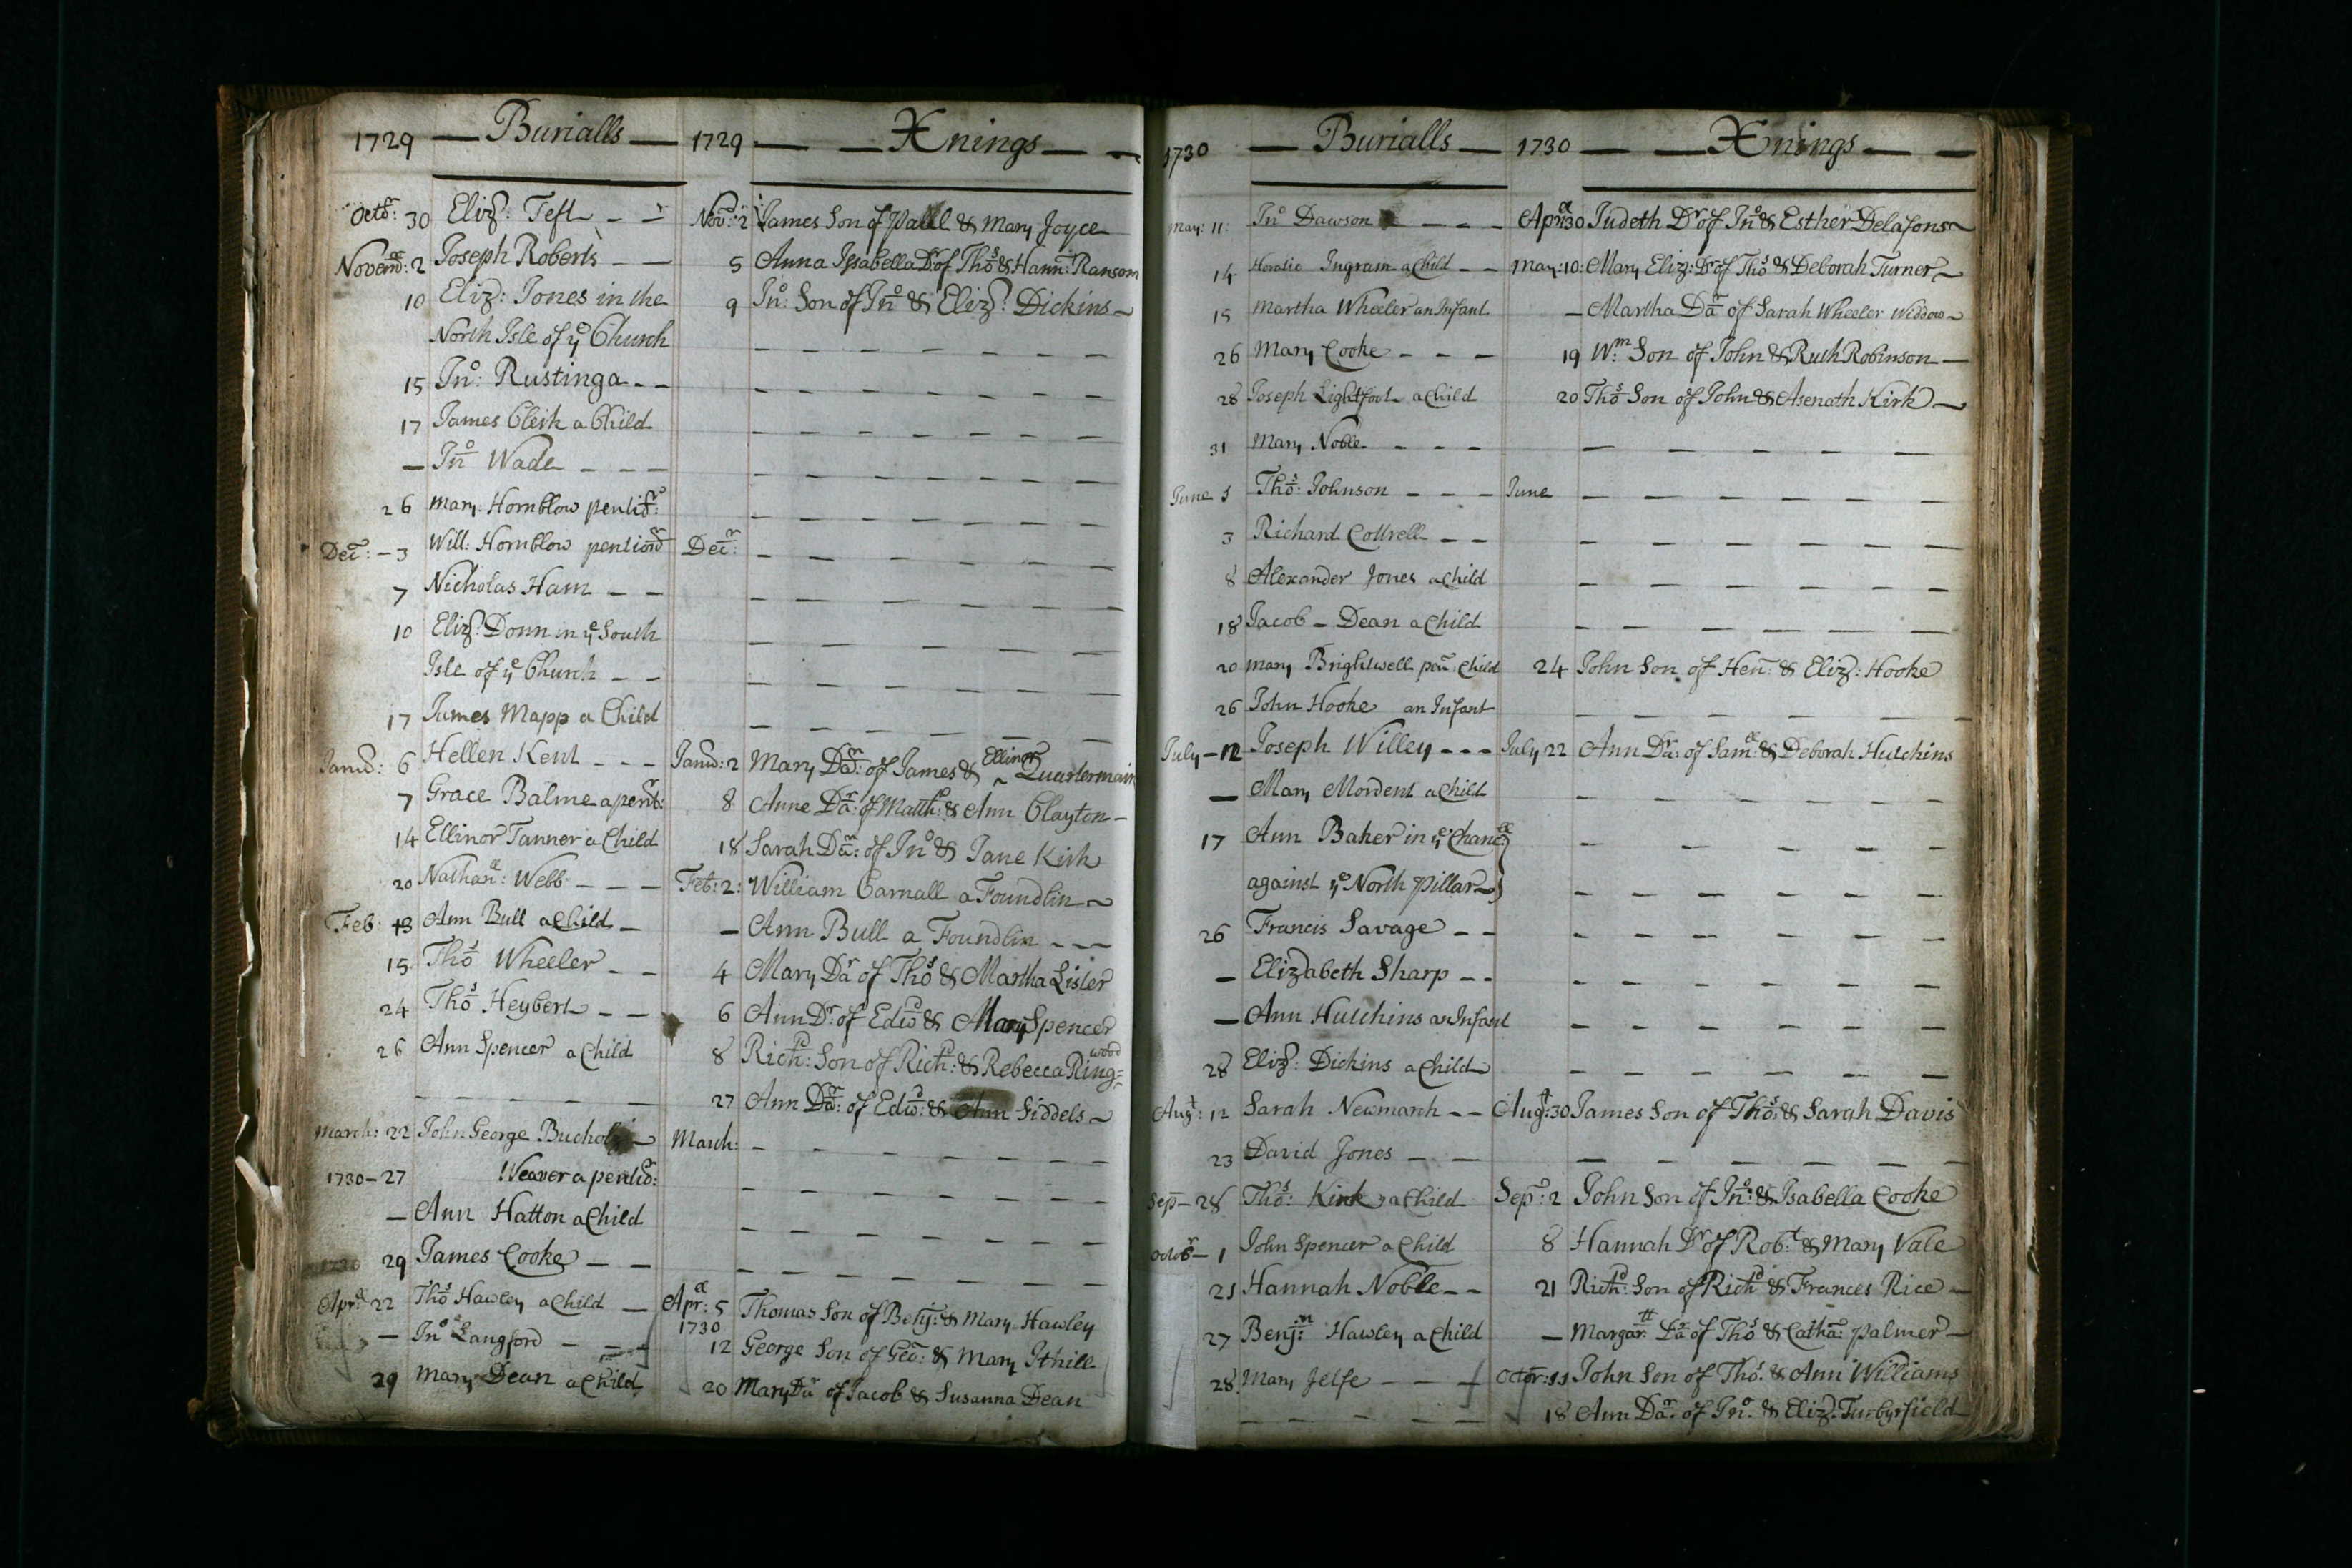 1729 — Burialls —
Octo^r: 30 Eliz: Teft
Novem^ber: 2 Joseph Roberts
10 Eliz: Jones in the
North Isle of y^e Church
15 Jn^o: Rustinga
17 James Clerk a Child
— Jn^o Wade
26 Mary Hornblow
Dec^r: 3 Will: Hornblow
7 Nicholas Ham
10 Eliz: Donn in y^e South
Isle of y^e Church
17 James Mapp a Child
6 Hellen Kent
7 Grace Balme a
14 Ellinor Tanner a Child
20 Nathan^el: Webb
Feb: 13 Ann Bull a Child
15 Tho^s Wheeler
24 Tho^s Heybert
26 Ann Spencer a Child
March: 22 John George
1730 — 27 Weaver a
— Ann Hatton a Child
29 James Cooke
Apr^el 22 Tho^s Hawley a Child
— Jn^o Langford
29 Mary Dean a Child
1729 — Xnings —
Nov^r: 2 James Son of Paul & Mary Joyce
5 Anna Issabella D^r of Tho^s & Hann: Ransom
9 Jn^o: Son of Jn^o & Eliz: Dickins
Dec^r:
2 Mary Da^r: of James & Ellinor Quartermain
8 Anne Da^r: of Matth: & Ann Clayton
18 Sarah Da^r: of Jn^o & Jane Kirk
Feb: 2: William Carnall a Foundlin
— Ann Bull a Foundlin
4 Mary Da^r of Tho^s & Martha Lister
6 Ann D^r: of Edw^d & Mary Spencer
8 Rich^d: Son of Rich^d: & Rebecca Ring=
wood
27 Ann Da^r: of Edw^d: & Ann Siddels
March:
Apr^el: 5 Thomas Son of Benj: & Mary Hawley
1730
12 George Son of Geo: & Mary Ithill
20 Mary Da^r of Jacob & Susanna Dean
1730 — Burialls —
May: 11: Jn^o Dawson
14 Horatio Ingram a Child
15 Martha Wheeler an Infant
26 Mary Cooke
28 Joseph Lightfoot a Child
31 Mary Noble
June 1 Tho^s: Johnson
3 Richard Cottrell
8 Alexander Jones a Child
18 Jacob — Dean a Child
20 Mary Brightwell pen: Child
26 John Hooke an Infant
July — 12 Joseph Willey
— Mary Mordent a Child
17 Ann Baker in y^e Chanc^el
against y^e North Pillar
26 Francis Savage
— Elizabeth Sharp
— Ann Hutchins an Infant
28 Eliz: Dickins a Child
Aug^t: 12 Sarah Newmarch
23 David Jones
Sep — 28 Tho^s: Kirk a Child
Octob^r — 1 John Spencer a Child
21 Hannah Noble
27 Benj:^m Hawley a Child
28 Mary Jelfe
1730 — Xnings —
Apr^el 30 Judeth D^r of Jn^o & Esther Delafons
May: 10: Mary Eliz: D^r of Tho^s & Deborah Turner
— Martha Da^r of Sarah Wheeler Widdow
19 W^m Son of John & Ruth Robinson
20 Tho^s Son of John & Asenath Kirk
June
24 John Son of Hen: & Eliz: Hooke
July 22 Ann Da^r: of Sam^el: & Deborah Hutchins
Aug^t: 30 James Son of Tho^s: & Sarah Davis
Sep^r: 2 John Son of Jn^o: & Isabella Cooke
8 Hannah D^r of Rob^t: & Mary Vale
21 Rich^d: Son of Rich^d & Frances Rice
— Margar^tt: Da^r of Tho^s & Catha: Palmer
Octo^r: 11 John Son of Tho^s: & Ann Williams
18 Ann Da^r: of Jn^o: & Eliz: Turbyrfield